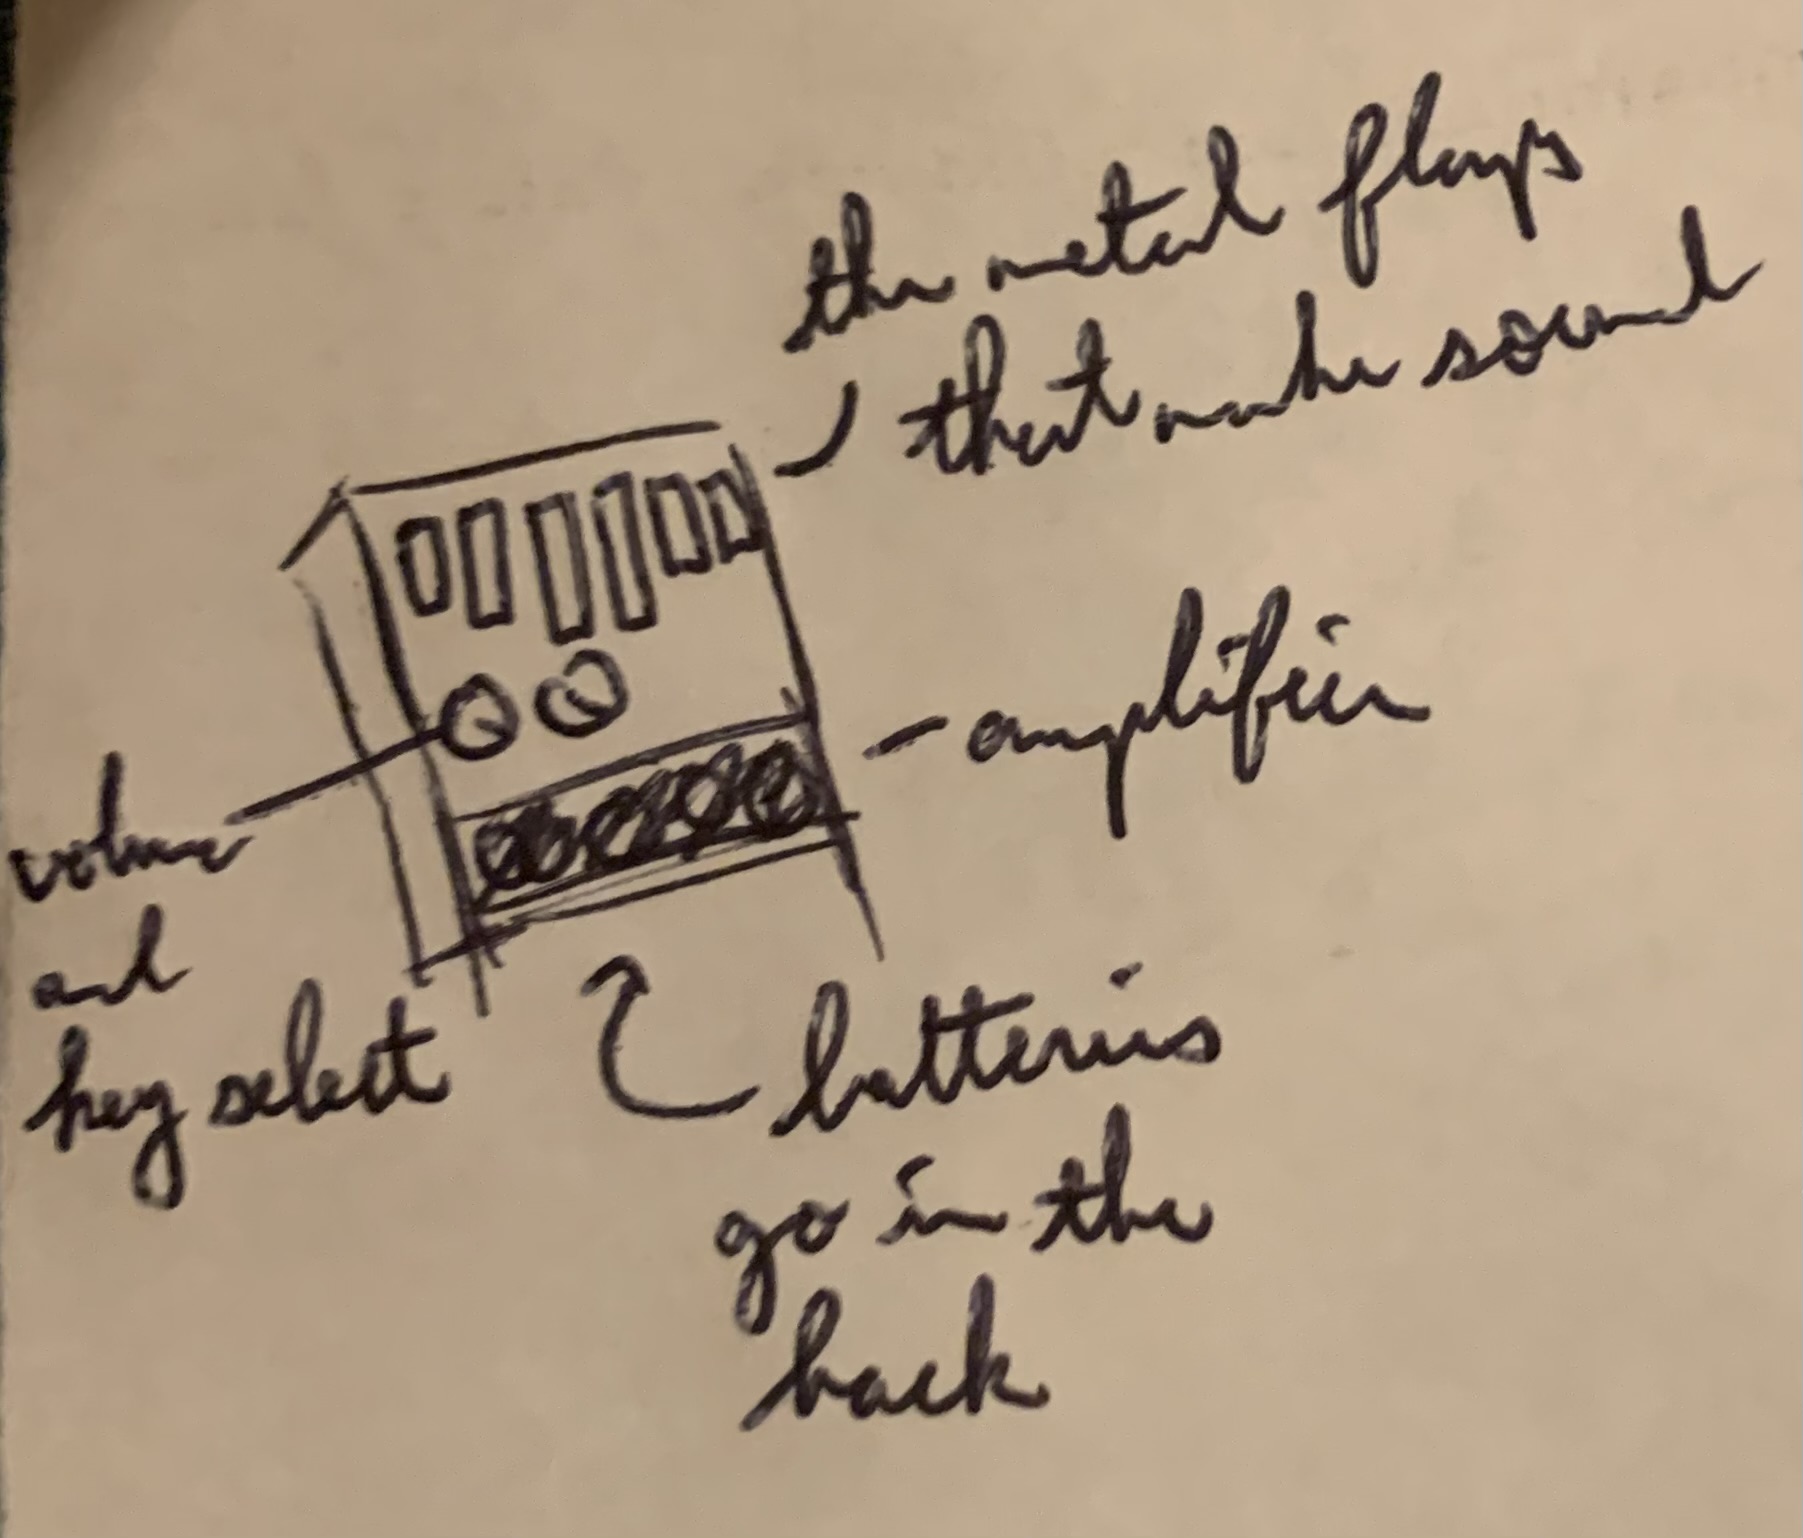 the metal flaps
that make sound
amplifier
volume
and
key select
batteries
go in the
back